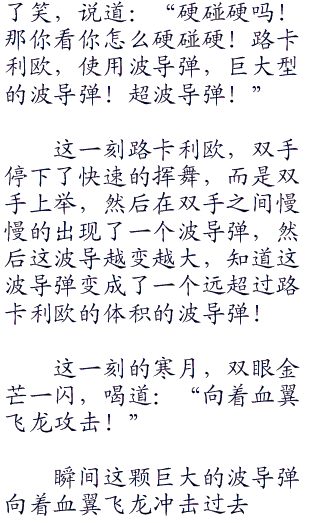 了笑，说道：“硬碰硬吗！
那你看你怎么硬碰硬！路卡
利欧，使用波导弹，巨大型
的波导弹！超波导弹！”
这一刻路卡利欧，双手
停下了快速的挥舞，而是双
手上举，然后在双手之间慢
慢的出现了一个波导弹，然
后这波导越变越大，知道这
波导弹变成了一个远超过路
卡利欧的体积的波导弹！
这一刻的寒月，双眼金
芒一闪，喝道：“向着血翼
飞龙攻击！”
瞬间这颗巨大的波导弹
向着血翼飞龙冲击过去